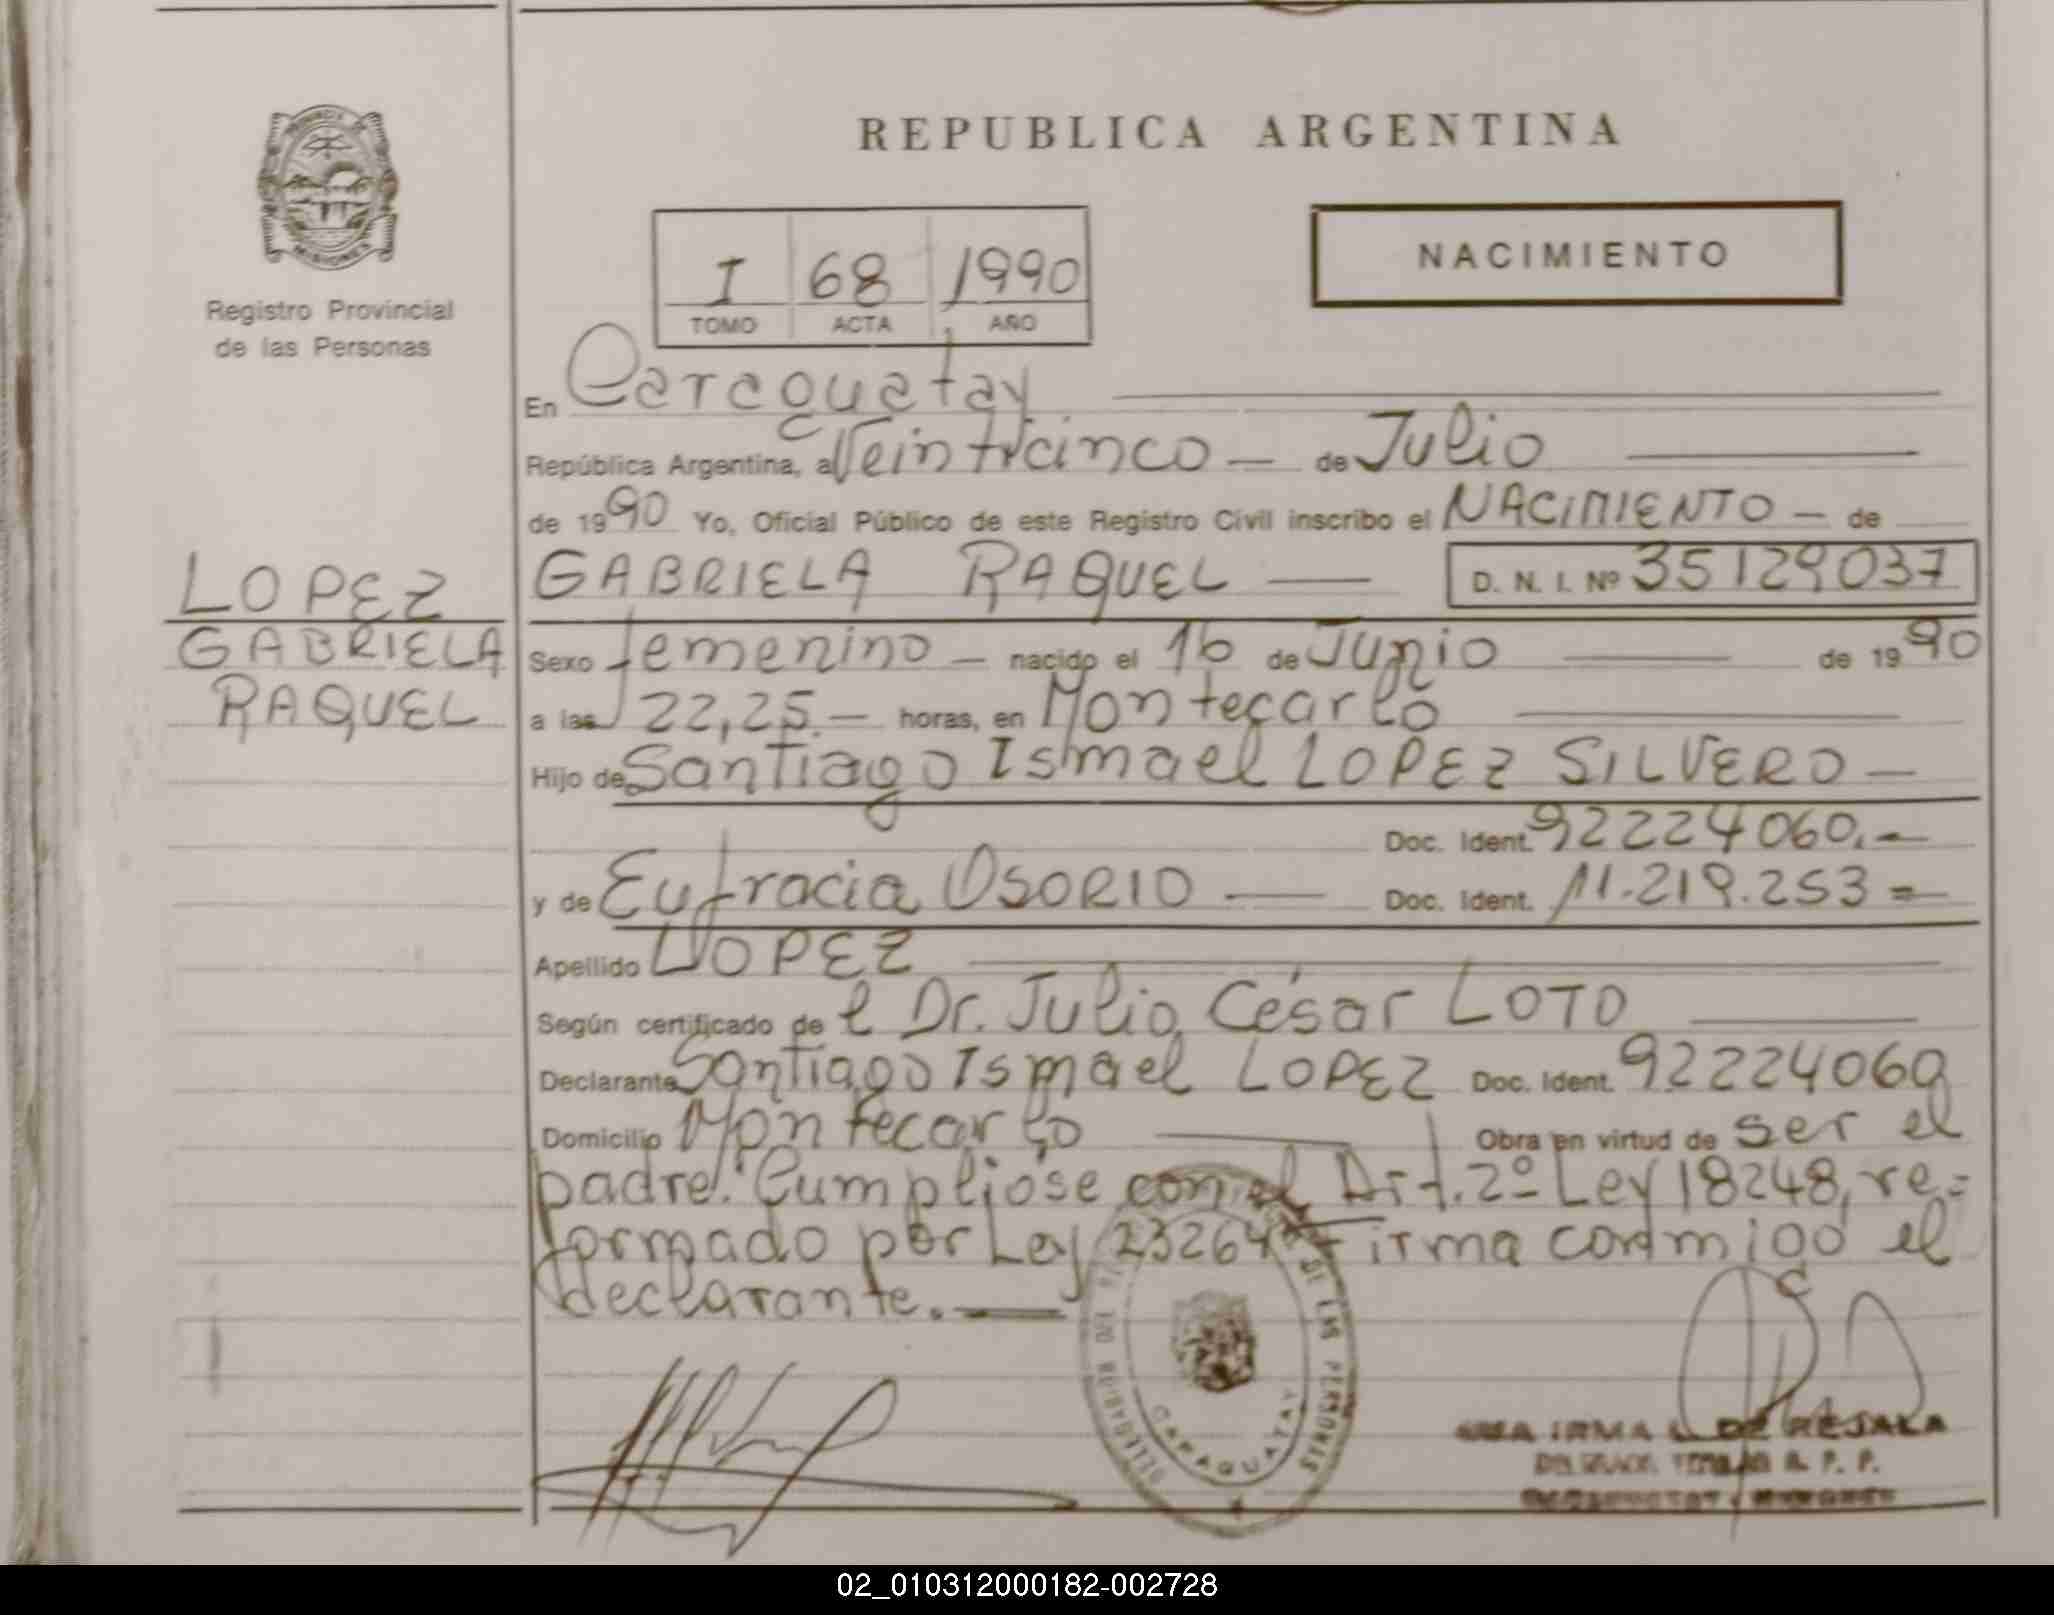 REPUBLICA ARGENTINA
PROVINCIA DE
MISIONES
Registro Provincial
de las Personas
I 68 1990
TOMO ACTA AÑO
NACIMIENTO
En Caraguatay
República Argentina, a Veinticinco — de Julio
de 1990 Yo, Oficial Público de este Registro Civil inscribo el NACIMIENTO — de
LOPEZ
GABRIELA
RAQUEL
GABRIELA RAQUEL — D. N. I. Nº 35129037
Sexo femenino — nacido el 16 de Junio — de 1990
a las 22,25 — horas, en Montecarlo
Hijo de Santiago Ismael LOPEZ SILVERO —
Doc. Ident. 92224060.—
y de Eufracia OSORIO — Doc. Ident. 11.219.253 =
Apellido LOPEZ
Según certificado de l Dr. Julio César LOTO
Declarante Santiago Ismael LOPEZ Doc. Ident. 92224060
Domicilio Montecarlo — Obra en virtud de ser el
padre. Cumplióse con el Art. 2º Ley 18248, re=
formado por Ley 23264 Firma conmigo el
declarante. —
DE LAS PERSONAS
CARAGUATAY
IRMA L. DE REJALA
TITULAR R. P. P.
02_010312000182-002728